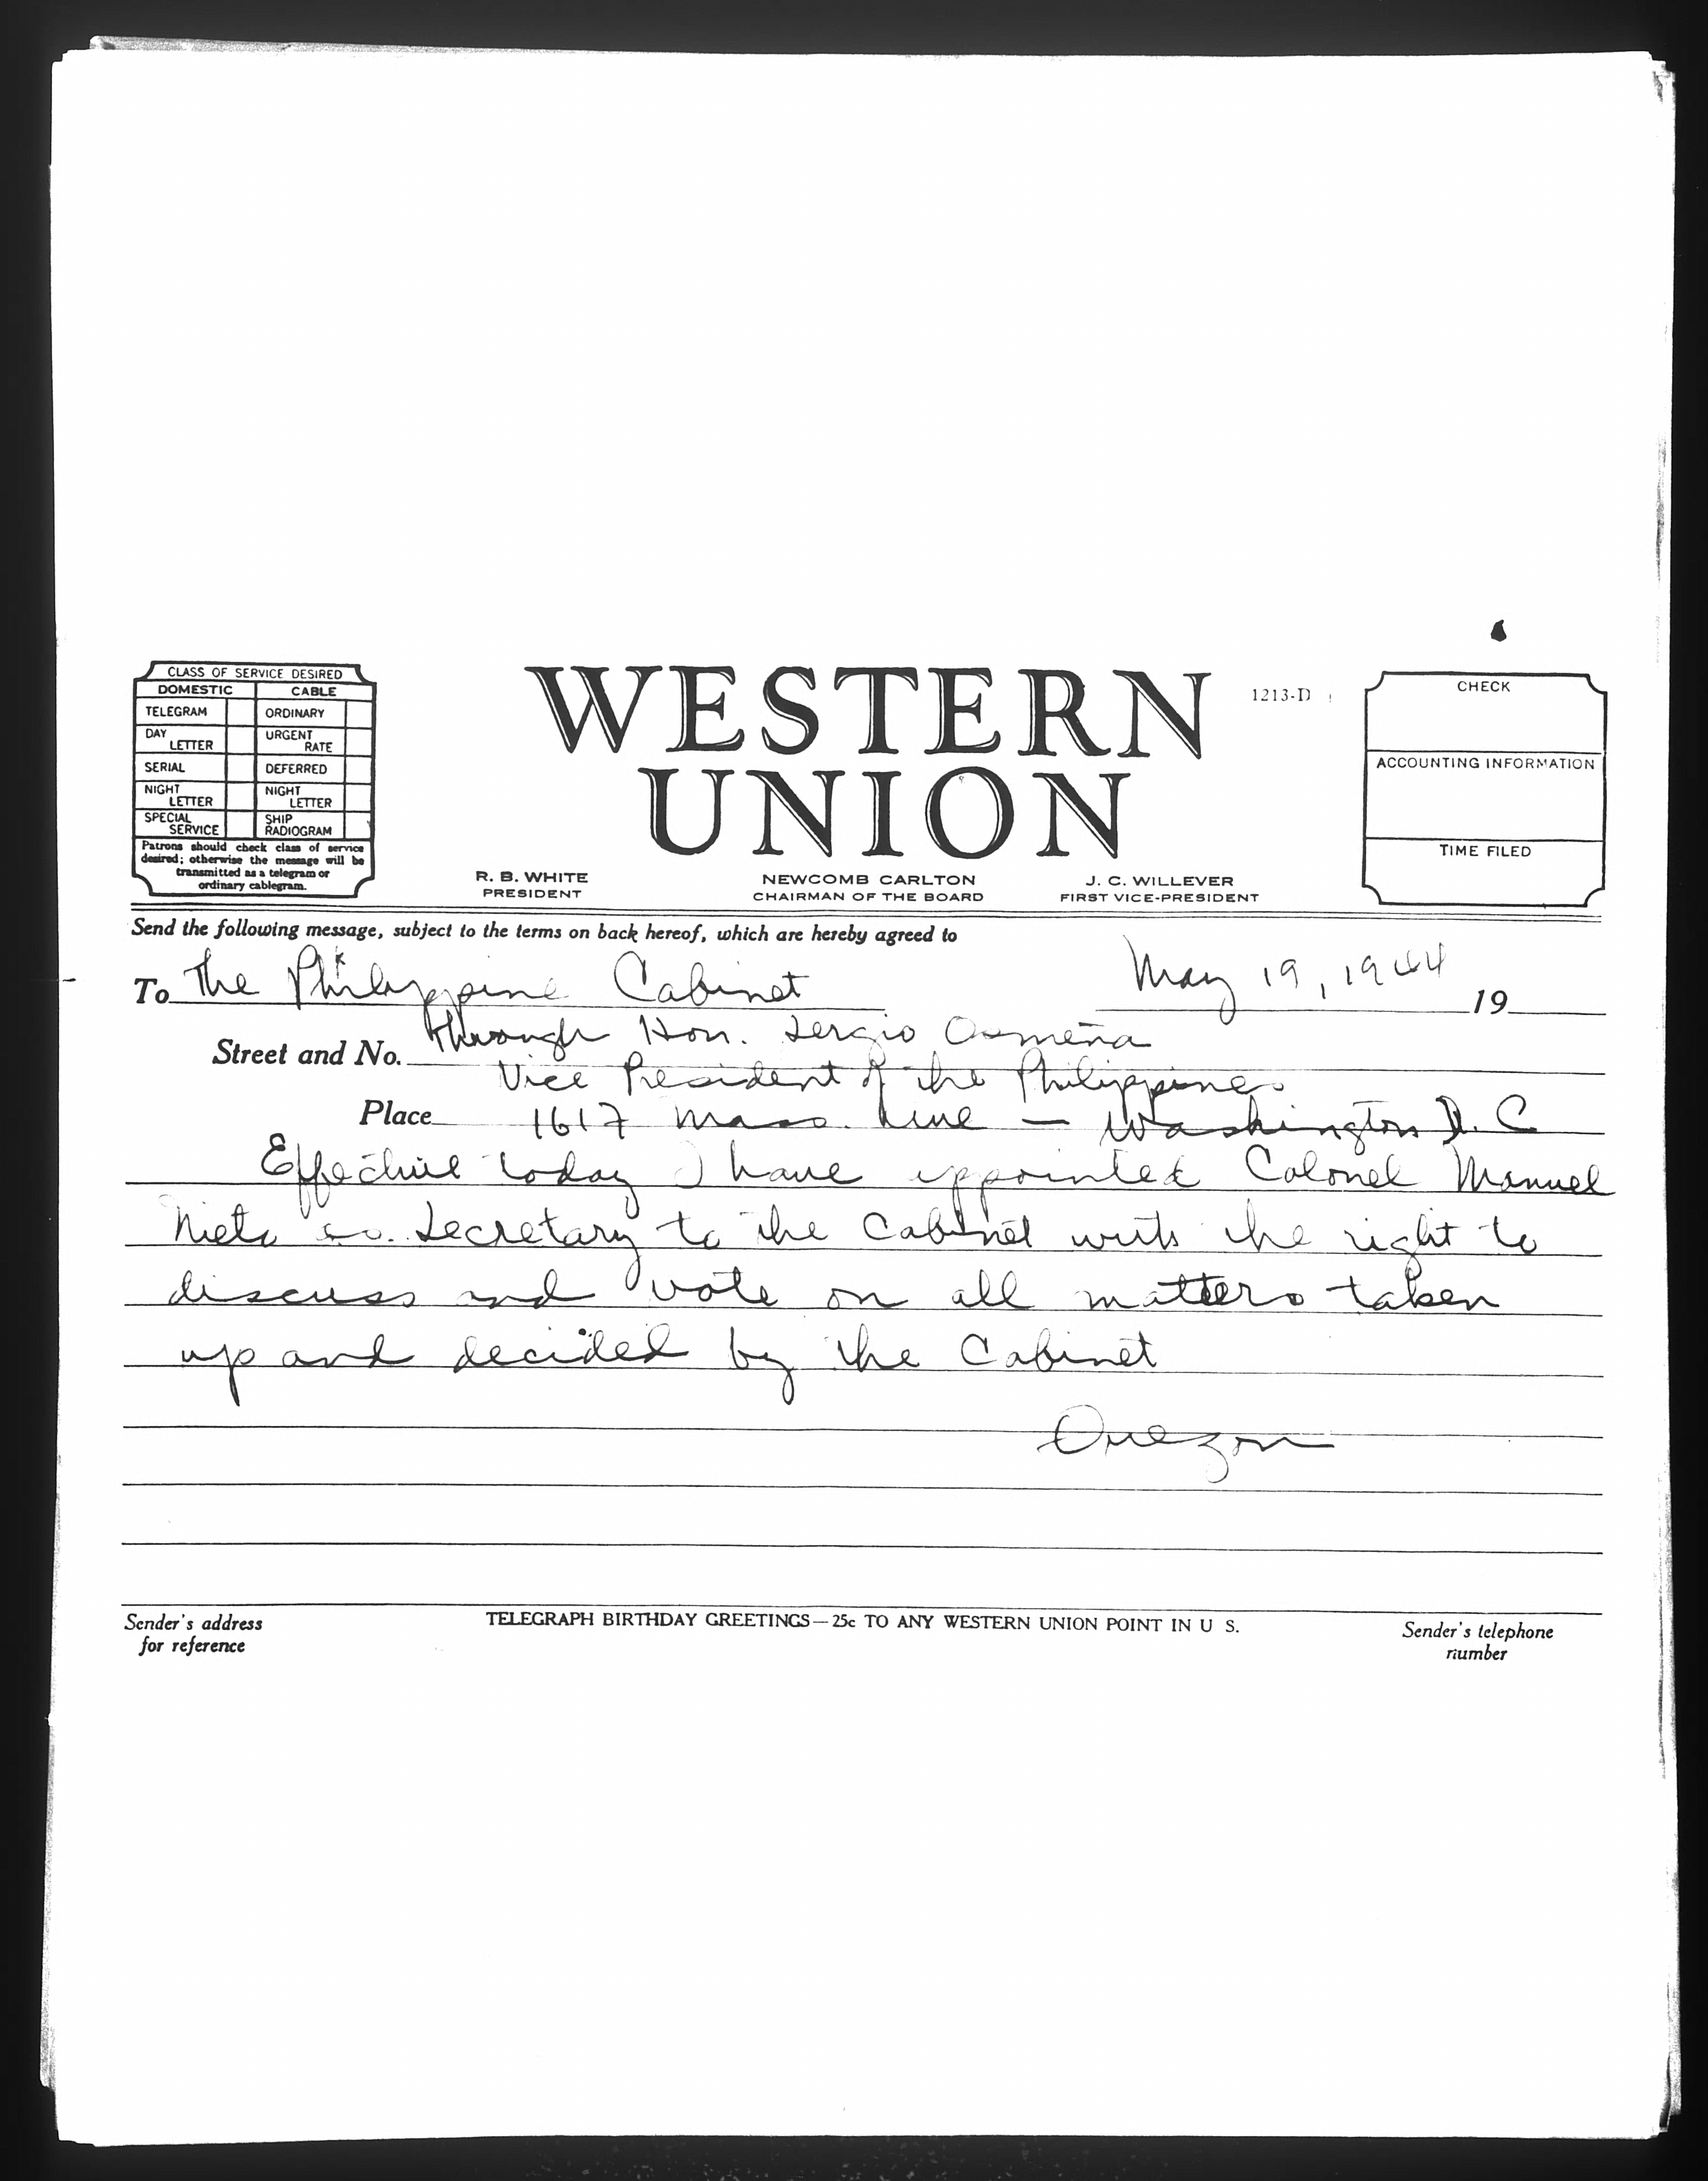 CLASS OF SERVICE DESIRED
DOMESTIC CABLE
TELEGRAM ORDINARY
DAY LETTER URGENT RATE
SERIAL DEFERRED
NIGHT LETTER NIGHT LETTER
SPECIAL SERVICE SHIP RADIOGRAM
Patrons should check class of service
desired; otherwise the message will be
transmitted as a telegram or
ordinary cablegram.
WESTERN
UNION
1213-D
CHECK
ACCOUNTING INFORMATION
TIME FILED
R. B. WHITE
PRESIDENT
NEWCOMB CARLTON
CHAIRMAN OF THE BOARD
J. C. WILLEVER
FIRST VICE-PRESIDENT
Send the following message, subject to the terms on back hereof, which are hereby agreed to
To The Philippine Cabinet May 19, 1944 19
Street and No. through Hon. Sergio Osmeña
Vice President of the Philippines
Place 1617 Mass. Ave — Washington D. C
Effective today I have appointed Colonel Manuel
Nieto as Secretary to the Cabinet with the right to
discuss and vote on all matters taken
up and decided by the Cabinet
Quezon
Sender's address
for reference
TELEGRAPH BIRTHDAY GREETINGS—25c TO ANY WESTERN UNION POINT IN U S.
Sender's telephone
number